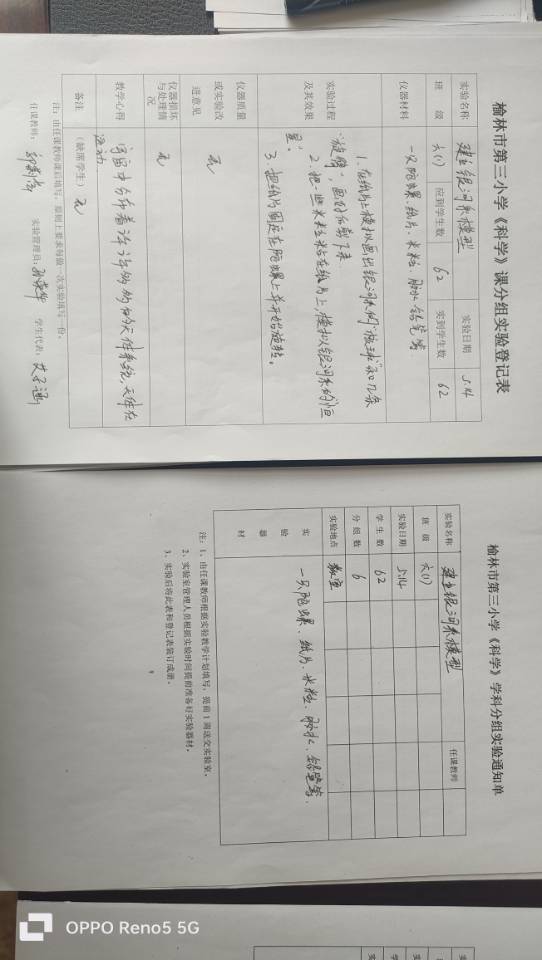 榆林市第三小学《科学》课分组实验登记表
实验名称 建立银河系模型 实验日期 5.14
班 级 六(1) 应到学生数 62 实到学生数 62
仪器材料 一只陀螺、纸片、米粒、胶水、铅笔等
实验过程及其效果
1. 在纸片上模拟画出银河系的“核球”和几条
“旋臂”,画好后剪下来.
2. 把一些米粒粘在纸片上,模拟银河系的恒
星”
3. 把纸片固定在陀螺上并开始旋转。
仪器质量或实验改进意见 无
仪器损坏与处理情况 无
教学心得 宇宙中分布着许许多多的天体系统,天体在
运动
备注 (缺席学生) 无
注:由任课教师课后填写,原则上要求每做一次实验填写一份。
任课教师: 实验管理员: 学生代表:
榆林市第三小学《科学》学科分组实验通知单
实验名称 建立银河系模型 任课教师
班 级 六(1)
实验日期 5.14
学 生 数 62
分 组 数 6
实验地点 教室
实验器材 一只陀螺、纸片、米粒、胶水、铅笔等.
注:1、由任课教师根据实验教学计划填写,提前1周送交实验室。
2、实验室管理人员根据实验时间提前准备好实验器材。
3、实验后将此表和登记表装订成册。
OPPO Reno5 5G